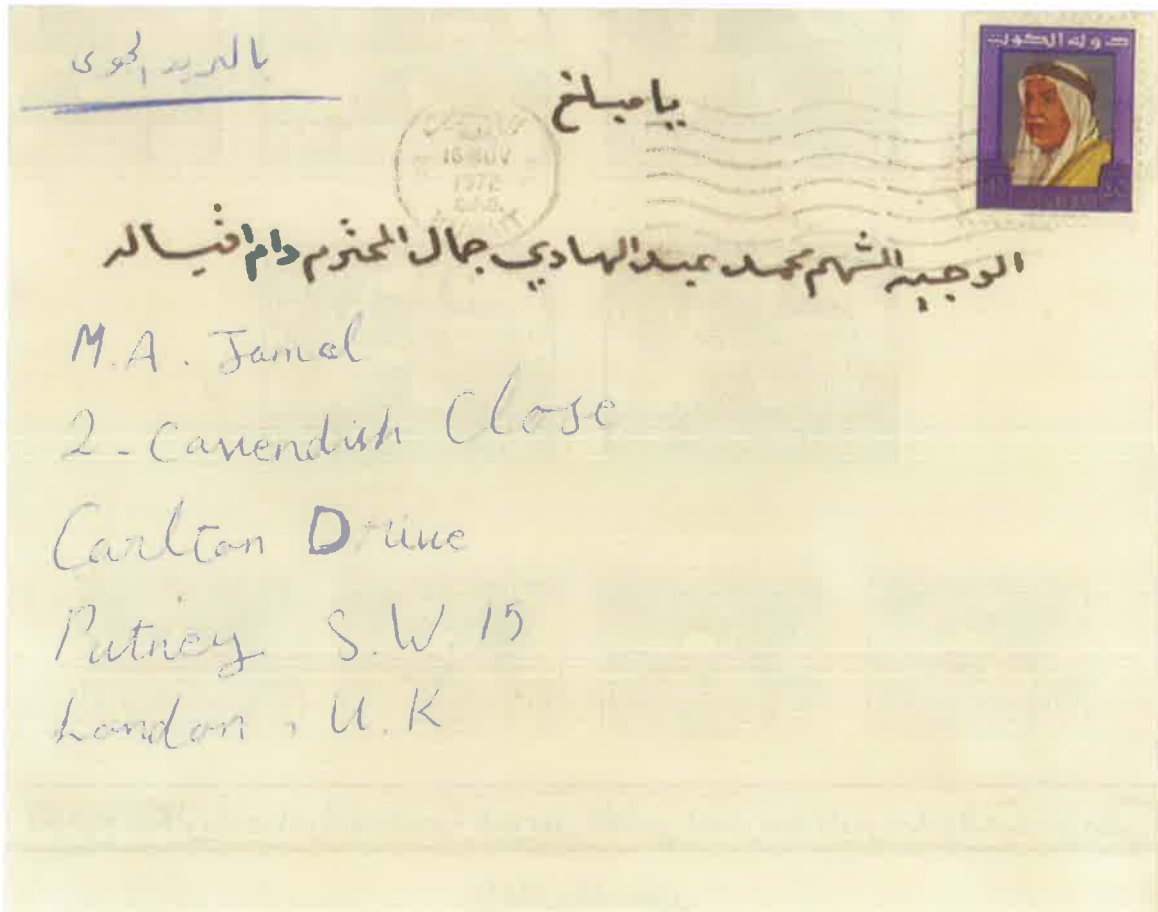 بالبريد الجوى
دولة الكويت
16 NOV
1972
الوجيه الشهم محمد عبد الهادي جمال المحترم دام اقباله
M.A. Jamal
2 - Cavendish Close
Carlton Drive
Putney S.W. 15
London, U.K